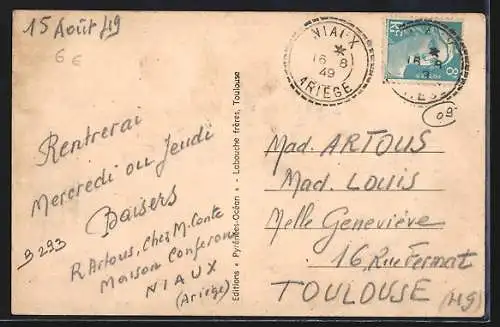 15 Août 49
6 €
Rentrerai
Mercredi ou Jeudi
Baisers
R Artous, Chez M. Conte
Maison
NIAUX
(Ariège)
Editions « Pyrénées-Océan » - Labouche frères, Toulouse
NIAUX
*
16 - 8
49
ARIEGE
09
Mad. ARTOUS
Mad. LOUIS
Melle Geneviève
16 Rue Fermat
TOULOUSE (49)